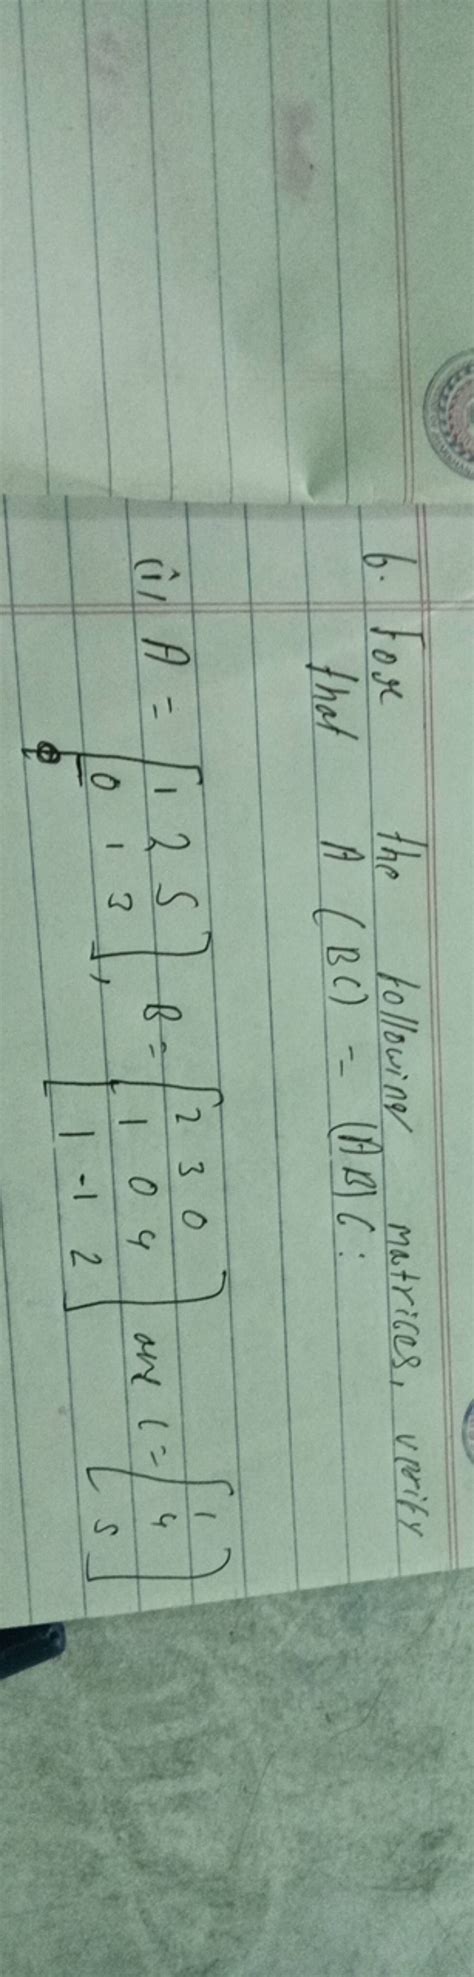 6. For the following matrices, verify
that A (BC) = (AB) C :
(i) A = [1 2 5
0 1 3], B = [2 3 0
1 0 4
1 -1 2] and C = [1
4
5]